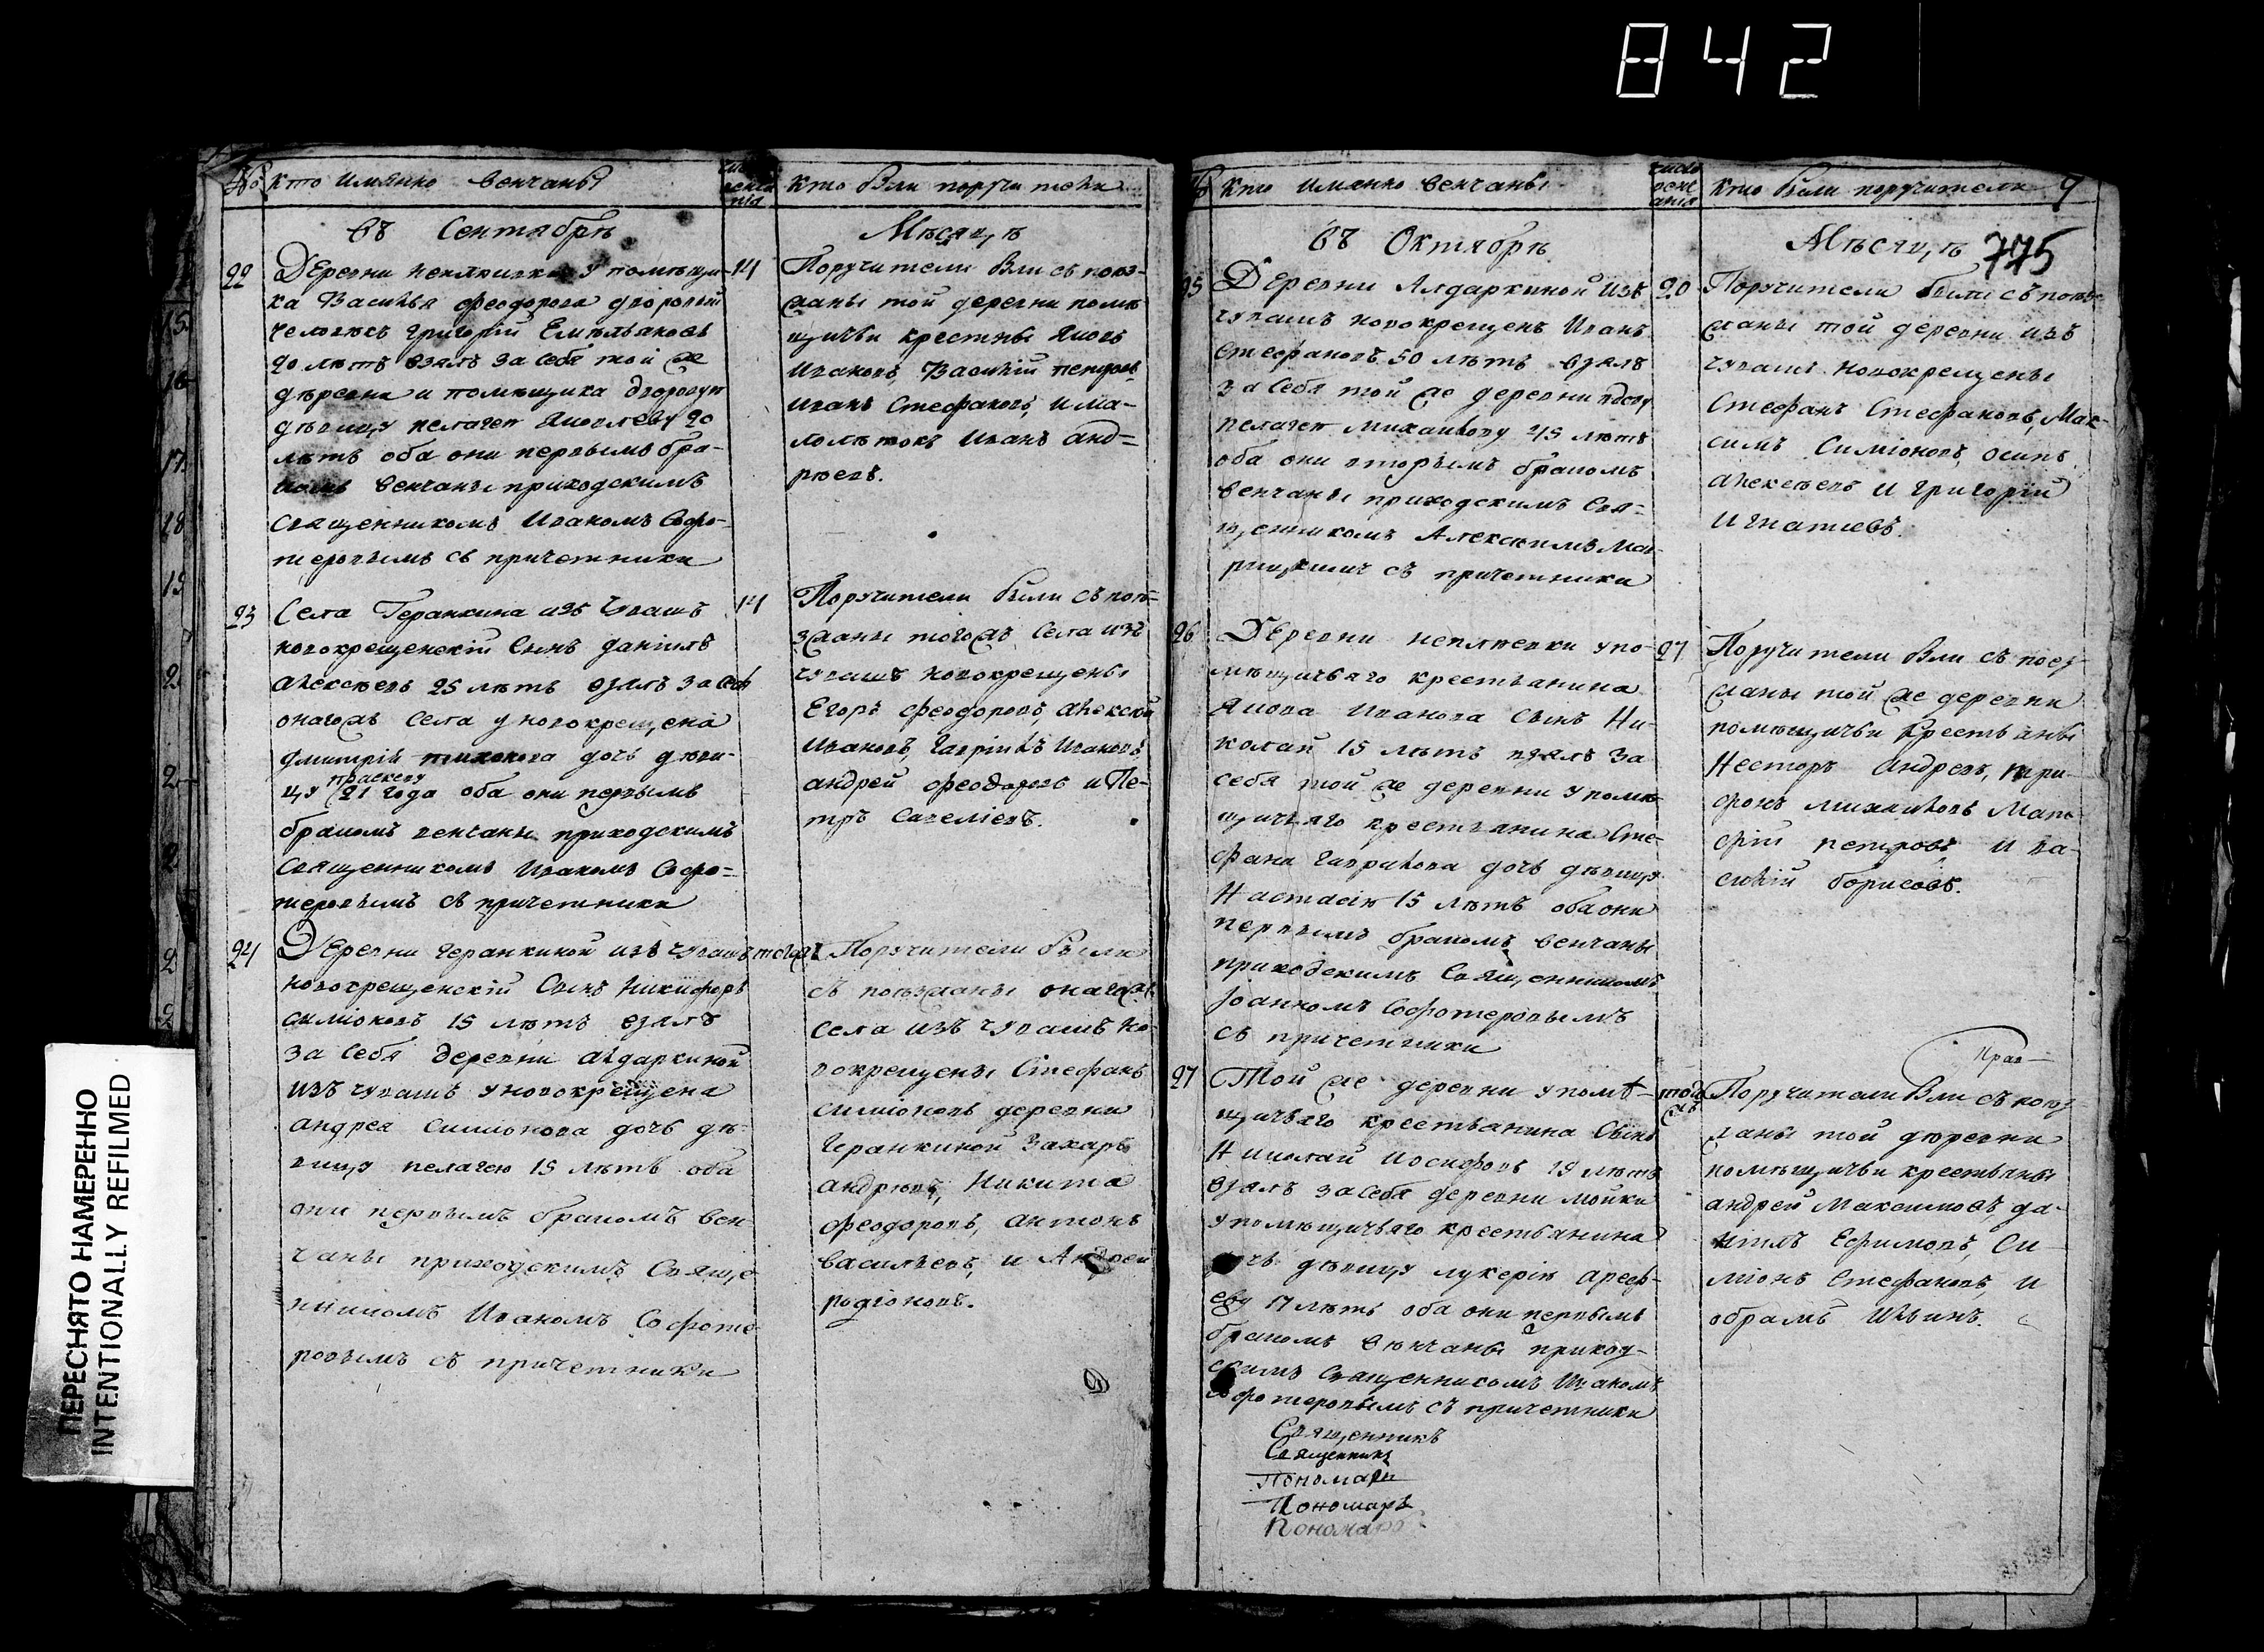 842
№ кто имянно венчаны
кто Были поручители
въ Сентябрѣ
Мѣсяцѣ
22
Деревни неплюевки у помѣщи-
ка Василья феодорова дворовый
человѣкъ григорїй Емельяновъ
20 лѣтъ взялъ за себя той же
дѣревни и помѣщика дворовую
дѣвицу пелагею яковлеву 20
лѣтъ оба они первымъ бра-
комъ венчаны приходскимъ
священникомъ Иваномъ Софо-
теровымъ съ причетники
14
Поручители были съ поѣз-
жаны той деревни помѣ
щичьи крестьяны яковъ
Ивановъ, Василїй петровъ
иванъ Стефановъ, и ма-
лолѣтокъ иванъ анд=
рѣевъ.
23
Села Геранкина изъ чувашъ
новокрещенскїй сынъ данїилъ
алексѣевъ 25 лѣтъ взялъ за себя
оногожъ села у новокрещена
дмитрїя тихонова дочь дѣви-
праскеву
цу 21 года оба они первымъ
бракомъ венчаны приходскимъ
священникомъ Иваномъ Софо=
теровымъ съ причетники
14
Поручители были съ поѣ=
зжаны тогожъ села изъ
чувашъ новокрещены
Егоръ феодоровъ, алексѣй
Ивановъ, гаврїилъ Ивановъ,
андрей феодоровъ и Пе-
тръ савелїевъ.
24
Деревни геранкиной изъ чувашъ
новокрещенскїй сынъ никифоръ
симїоновъ 15 лѣтъ взялъ
за себя деревни алдаркиной
изъ чувашъ у новокрещена
андрея симїонова дочь дѣ-
вицу пелагею 15 лѣтъ оба
они первымъ бракомъ вен
чаны приходскимъ священ
никомъ Иваномъ Софоте
ровымъ съ причетники
тогожъ
Поручители были
съ поѣзжаны оногожъ
села изъ чувашъ но-
вокрещены Стефанъ
симїоновъ деревни
геранкиной захаръ
андрѣевъ, никита
феодоровъ, антонъ
васильевъ, и Андрей
родїоновъ.
кто имянно венчаны
кто были поручители 9
775
въ Октябрѣ
Мѣсяцѣ
25
Деревни Алдаркиной изъ
чувашъ новокрещенъ Иванъ
Стефановъ 50 лѣтъ взялъ
за себя той же деревни вдову
пелагею михайлову 45 лѣтъ
оба они вторымъ бракомъ
венчаны приходскимъ свя-
щенникомъ Алексѣемъ
съ причетники
20
Поручители были съ поѣз
жаны той деревни изъ
чувашъ новокрещены
Стефанъ Стефановъ, Мак-
симъ Симїоновъ, осипъ
алексѣевъ и григорїй
игнатиевъ.
26
Деревни неплюевки у по-
мѣщичьяго крестьянина
якова иванова сынъ Ни-
колай 15 лѣтъ взялъ за
себя той же деревни у помѣ
щичьяго крестьянина сте-
фана гаврилова дочь дѣвицу
Настасїю 15 лѣтъ оба они
первымъ бракомъ венчаны
приходскимъ священникомъ
Iоанномъ Софотеровымъ
съ причетники
27
Поручители были съ поез-
жаны той же деревни
помѣщичьи крестьяны
Несторъ андреевъ, три-
фонъ михайловъ Мат-
фїй петровъ и ва-
силїй борисовъ.
27
Той же деревни у помѣ-
щичьяго крестьянина сынъ
Николай иосифовъ 19 лѣтъ
взялъ за себя деревни мойки
у помѣщичьяго крестьянина
дочь дѣвицу лукерїю ареф-
еву 17 лѣтъ оба они первымъ
бракомъ вѣнчаны приход-
скимъ священникомъ Иваномъ
Софотеровымъ съ причетники
Священникъ
Священникъ
Пономарь
Пономарь
Пономарь
тогожъ
Поручители были съ поѣз-
жаны той дѣревни
помѣщичьи крестьяны
андрей Максимовъ, да-
нїилъ Ефимовъ, Си-
мїонъ Стефановъ, и
абрамъ Ильинъ.
ПЕРЕСНЯТО НАМЕРЕННО
INTENTIONALLY REFILMED